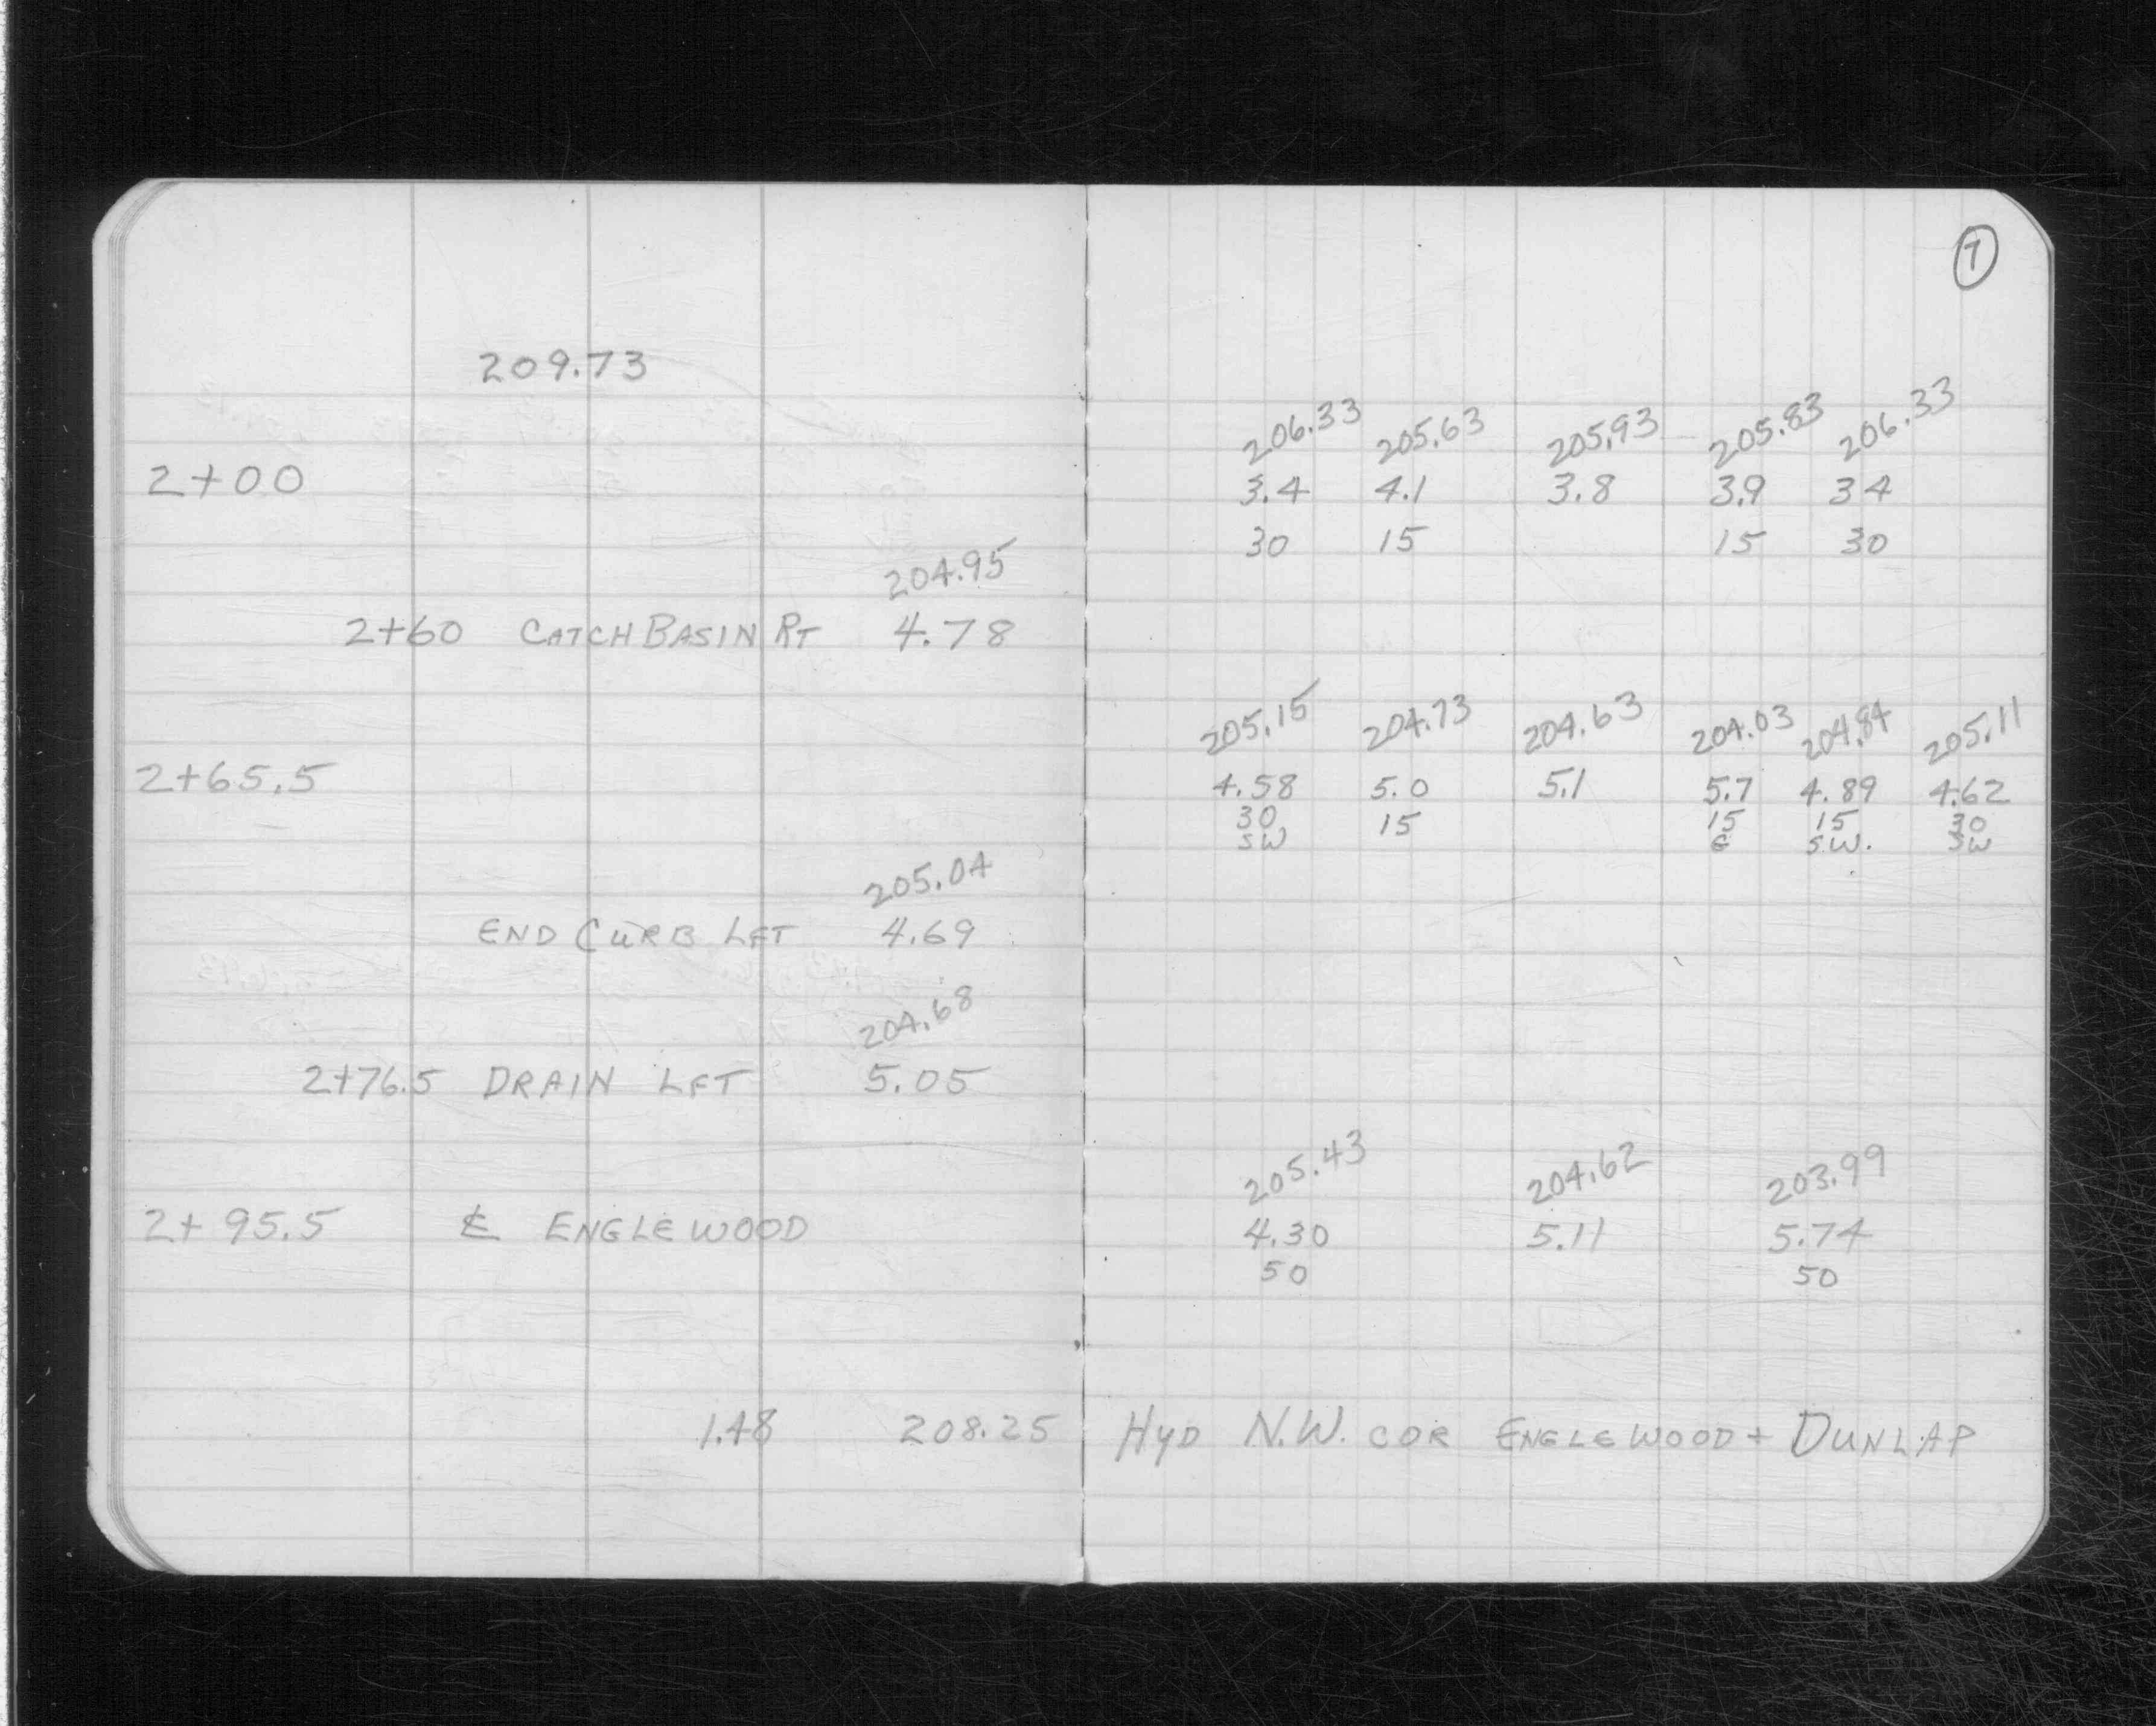 7
209.73
206.33 205.63 205.93 205.83 206.33
2+00 3.4 4.1 3.8 3.9 34
30 15 15 30
204.95
2+60 CATCH BASIN RT 4.78
205.15 204.73 204.63 204.03 204.84 205.11
2+65.5 4.58 5.0 5.1 5.7 4.89 4.62
30 15 15 15 30
SW G S.W. SW
205.04
END CURB LFT 4.69
204.68
2+76.5 DRAIN LFT 5.05
205.43 204.62 203.99
2+95.5 ℄ ENGLEWOOD 4.30 5.11 5.74
50 50
1.48 208.25 HYD N.W. COR ENGLEWOOD + DUNLAP